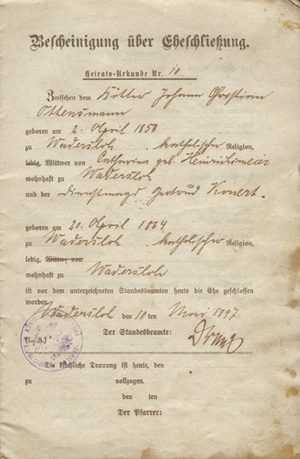 Bescheinigung über Eheschließung.
Heirats-Urkunde Nr. 10
Zwischen dem Kötter Johann Christian
Ottensmann
geboren am 2. April 1850
zu Wadersloh, katholischer Religion,
ledig, Wittwer von Catharina geb.
wohnhaft zu Wadersloh
und der Dienstmagd Gertrud
geboren am 20. April 1864
zu Wadersloh, katholischer Religion,
ledig, Wittwe von
wohnhaft zu Wadersloh
ist vor dem unterzeichneten Standesbeamten die Ehe geschlossen
worden.
Wadersloh, den 10 ten Mai 1897
Der Standesbeamte:
Die kirchliche Trauung ist heute, den
zu vollzogen.
den ten
Der Pfarrer: